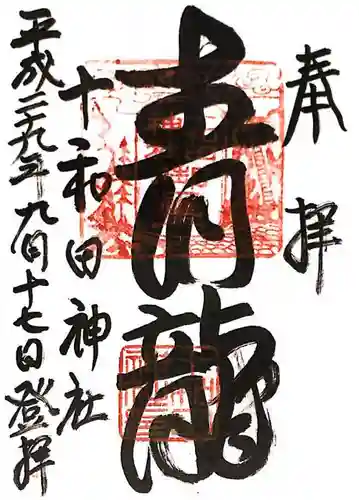 奉拝
青龍
十和田神社
平成二十九年九月十七日登拝